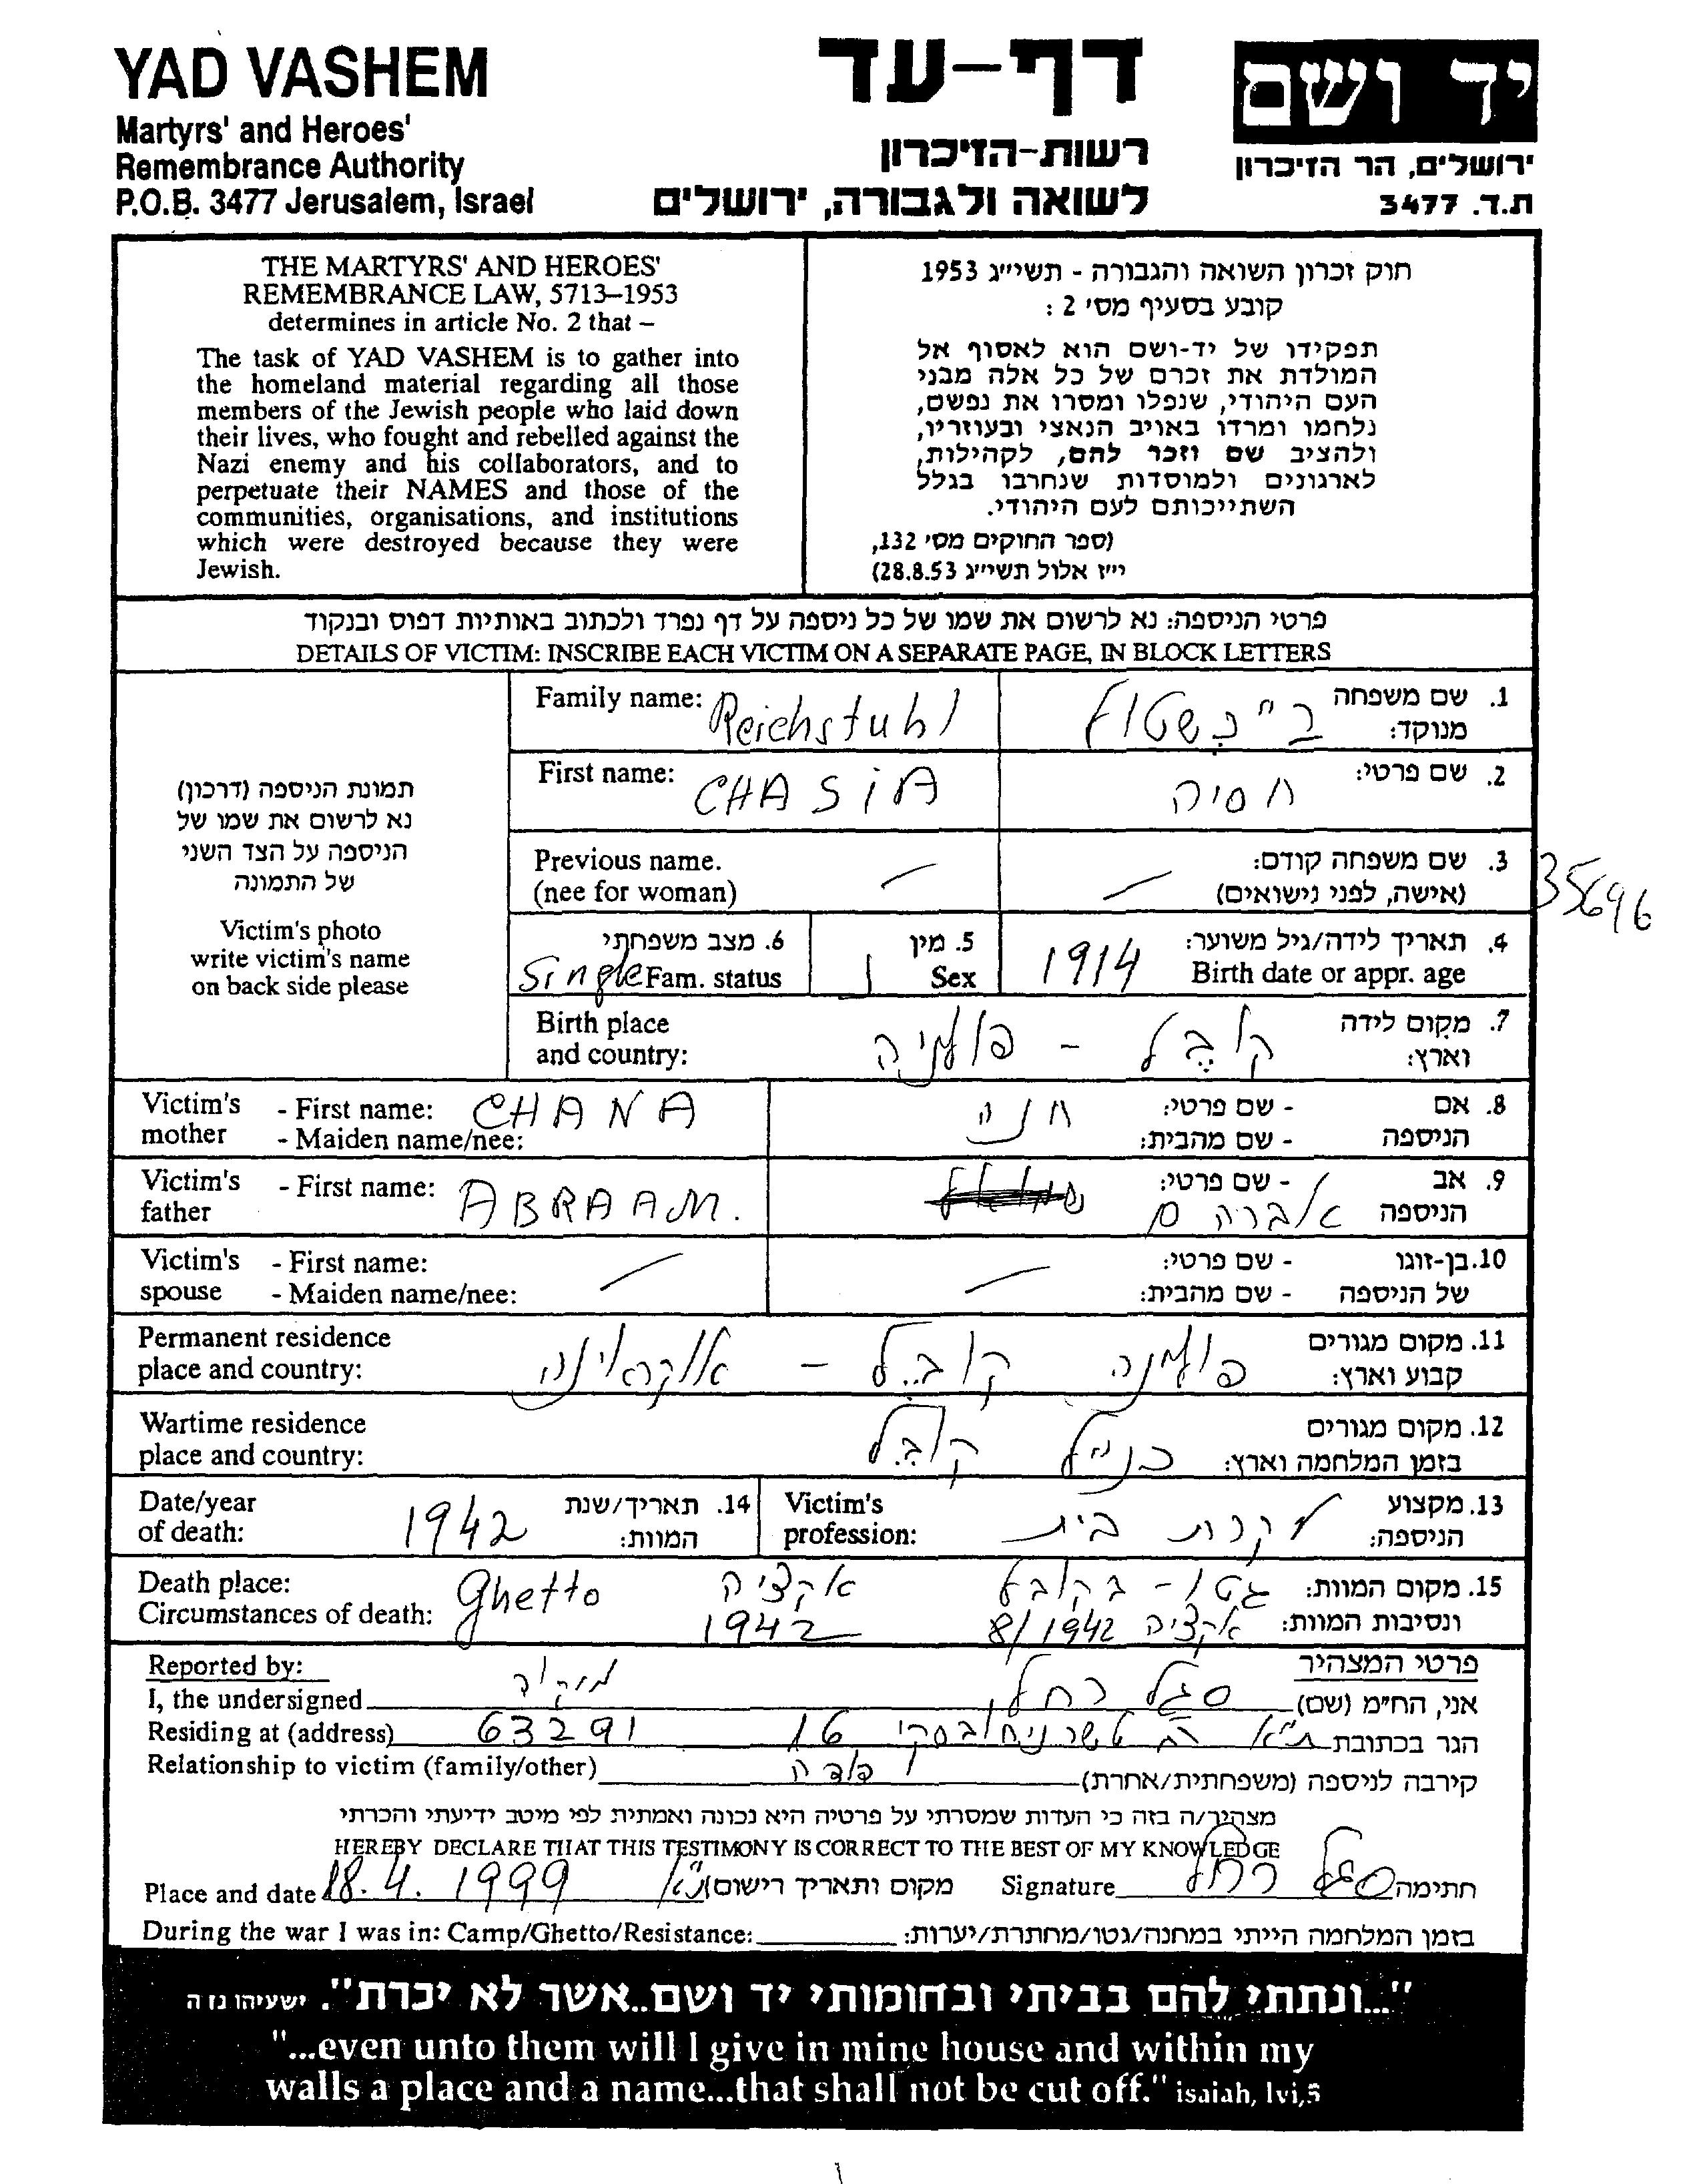 YAD VASHEM
Martyrs' and Heroes'
Remembrance Authority
P.O.B. 3477 Jerusalem, Israel
דף-עד
רשות-הזיכרון
לשואה ולגבורה, ירושלים
יד ושם
ירושלים, הר הזיכרון
ת.ד. 3477
THE MARTYRS' AND HEROES'
REMEMBRANCE LAW, 5713–1953
determines in article No. 2 that –
The task of YAD VASHEM is to gather into
the homeland material regarding all those
members of the Jewish people who laid down
their lives, who fought and rebelled against the
Nazi enemy and his collaborators, and to
perpetuate their NAMES and those of the
communities, organisations, and institutions
which were destroyed because they were
Jewish.
חוק זכרון השואה והגבורה - תשי״ג 1953
קובע בסעיף מס׳ 2 :
תפקידו של יד-ושם הוא לאסוף אל
המולדת את זכרם של כל אלה מבני
העם היהודי, שנפלו ומסרו את נפשם,
נלחמו ומרדו באויב הנאצי ובעוזריו,
ולהציב שם וזכר להם, לקהילות,
לארגונים ולמוסדות שנחרבו בגלל
השתייכותם לעם היהודי.
(ספר החוקים מס׳ 132,
י״ז אלול תשי״ג 28.8.53)
פרטי הניספה: נא לרשום את שמו של כל ניספה על דף נפרד ולכתוב באותיות דפוס ובנקוד
DETAILS OF VICTIM: INSCRIBE EACH VICTIM ON A SEPARATE PAGE, IN BLOCK LETTERS
תמונת הניספה (דרכון)
נא לרשום את שמו של
הניספה על הצד השני
של התמונה
Victim's photo
write victim's name
on back side please
Family name: Reichstuhl
1. שם משפחה
מנוקד:
First name: CHASIA
2. שם פרטי: חסיה
Previous name.
(nee for woman) —
3. שם משפחה קודם:
(אישה, לפני נישואים) —
35696
6. מצב משפחתי
Single Fam. status
5. מין
Sex
4. תאריך לידה/גיל משוער:
1914 Birth date or appr. age
Birth place
and country:
7. מקום לידה
וארץ: קובל - פולניה
Victim's mother - First name: CHANA
- Maiden name/nee:
8. אם הניספה - שם פרטי: חנה
- שם מהבית:
Victim's father - First name: ABRAAM.
9. אב הניספה - שם פרטי:
אברהם
Victim's spouse - First name: —
- Maiden name/nee:
10. בן-זוגו של הניספה - שם פרטי: —
- שם מהבית:
Permanent residence
place and country:
11. מקום מגורים
קבוע וארץ: פולניה קובל - אוקראינה
Wartime residence
place and country:
12. מקום מגורים
בזמן המלחמה וארץ: כנ״ל קובל
Date/year
of death: 1942
14. תאריך/שנת
המוות:
Victim's
profession:
13. מקצוע
הניספה: עקרת בית
Death place: Ghetto
Circumstances of death:
15. מקום המוות: גטו - בקובל אקציה
ונסיבות המוות: אקציה 8/1942 1942
Reported by:
I, the undersigned
Residing at (address) 63291
Relationship to victim (family/other)
פרטי המצהיר
אני, הח״מ (שם) סגל רחל
הגר בכתובת ת״א טשרניחובסקי 16
קירבה לניספה (משפחתית/אחרת) דודה
מצהיר/ה בזה כי העדות שמסרתי על פרטיה היא נכונה ואמתית לפי מיטב ידיעתי והכרתי
HEREBY DECLARE THAT THIS TESTIMONY IS CORRECT TO THE BEST OF MY KNOWLEDGE
Place and date 18.4.1999 ת״א מקום ותאריך רישום
Signature סגל רחל חתימה
During the war I was in: Camp/Ghetto/Resistance:
בזמן המלחמה הייתי במחנה/גטו/מחתרת/יערות:
"...ונתתי להם בביתי ובחומותי יד ושם..אשר לא יכרת". ישעיהו נז ה
"...even unto them will I give in mine house and within my
walls a place and a name...that shall not be cut off." isaiah, lvi,5